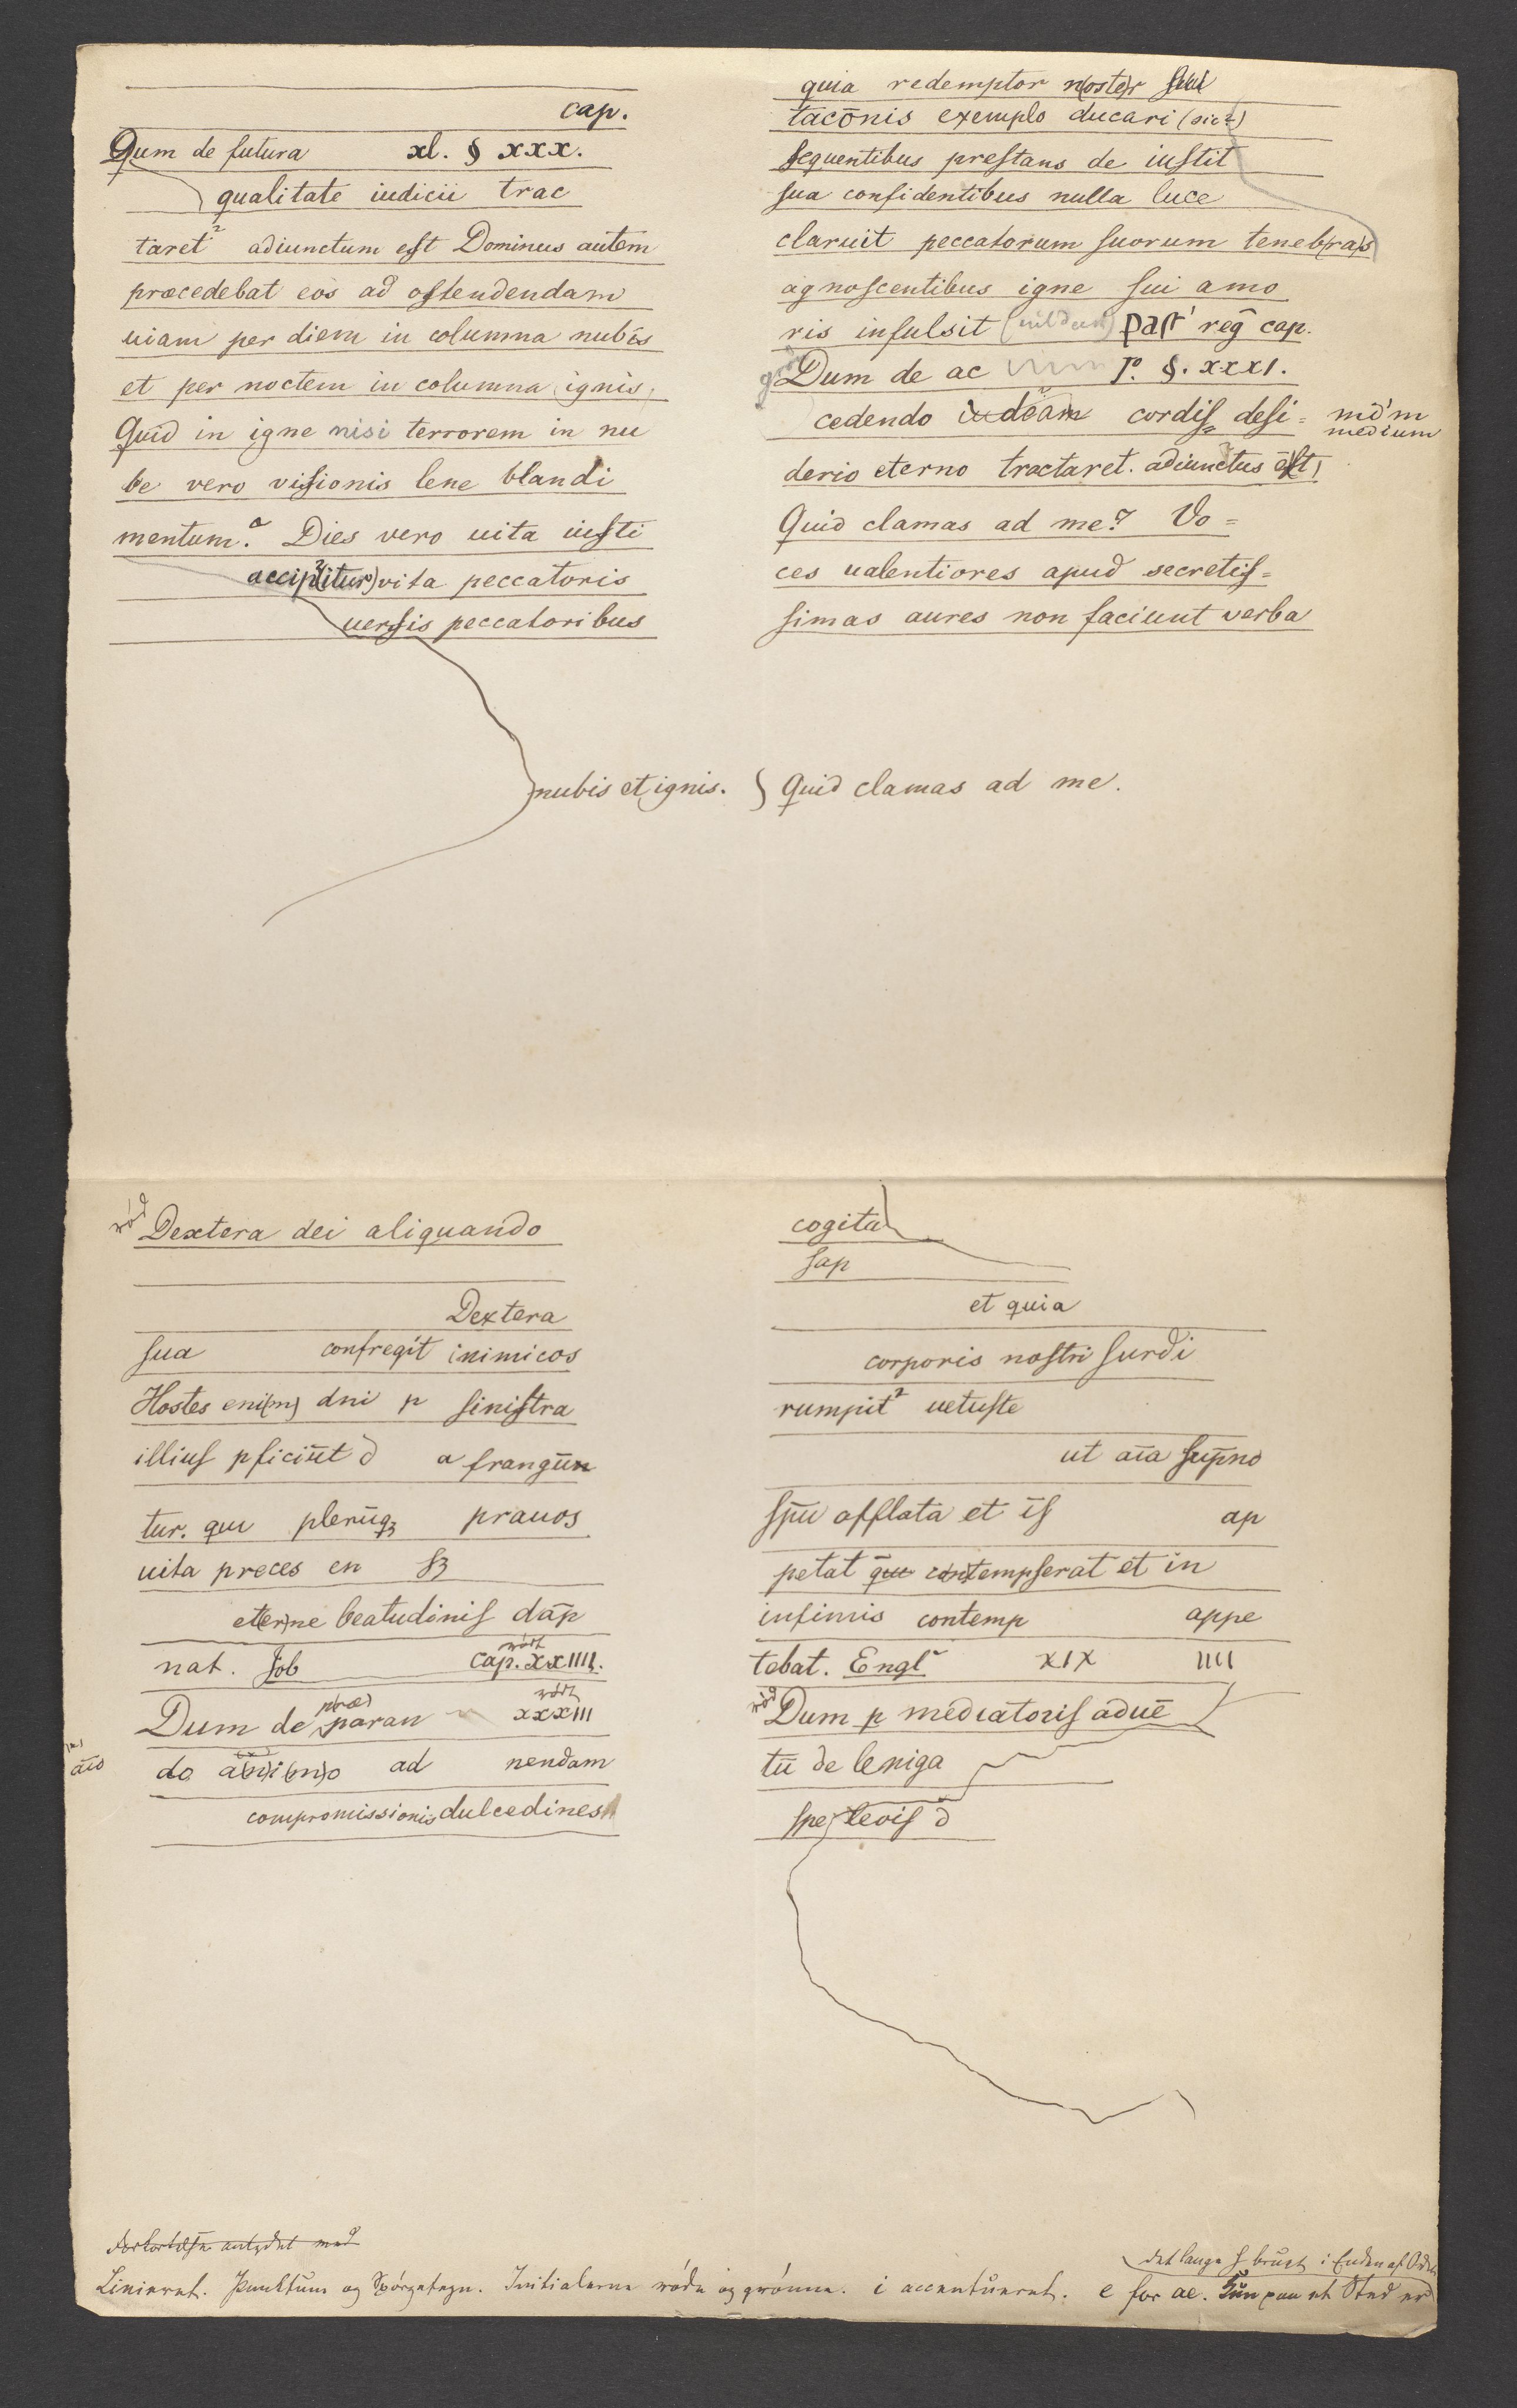 cap.
Qum de futura xl. § xxx.
qualitate iudicii trac
taret adiunctum est Dominus autem
præcedebat eos ad ostendendam
uiam per diem in columna nubis
et per noctem in columna ignis.
Quid in igne nisi terrorem in nu
be vero visionis lene blandi
mentum? Dies vero uita iusti
accip(itur) vita peccatoris
uersis peccatoribus
nubis et ignis.
quia redemptor n(oste)r
tacōnis exemplo ducari (sic?)
sequentibus prestans de iustit
sua confidentibus nulla luce
claruit peccatorum suorum teneb(ra)s
agnoscentibus igne sui amo
ris infulsit past' reg cap.
Dum de ac §. xxxı.
cedendo cordis desi=
mōm
medium
derio eterno tractaret. adiunctus est,
Quid clamas ad me? Vo=
ces ualentiores apud secretis=
simas aures non faciunt verba
Quid clamas ad me.
rød
Dextera dei aliquando
Dextera
sua confregit inimicos
Hostes eni(m) dni p sinistra
illius pficiūt d a frangūn
tur. qui plerūqꝫ prauos
uita preces en sꝫ
et(er)ne beatudinis dāp
nat. Job cap. xxıııı.
Dum de p(ræ)paran xxxııı
do a(n)i(m)o ad nendam
aīo
compromissionis dulcedines
cogita
sap
et quia
corporis nostri surdi
rumpit² uetuste
ut aīa supno
spū afflata et is ap
petat que contempserat et in
infimis contemp appe
tebat. Engl xıx ıııı
rød
Dum p mediatoris aduē
tū de leniga
spe leois d
Liniaert. Punktum og Spörgetegn. Initialerne røde og grønne. i accentueret. e for ae.
det lange s brugt i Enden af Ord